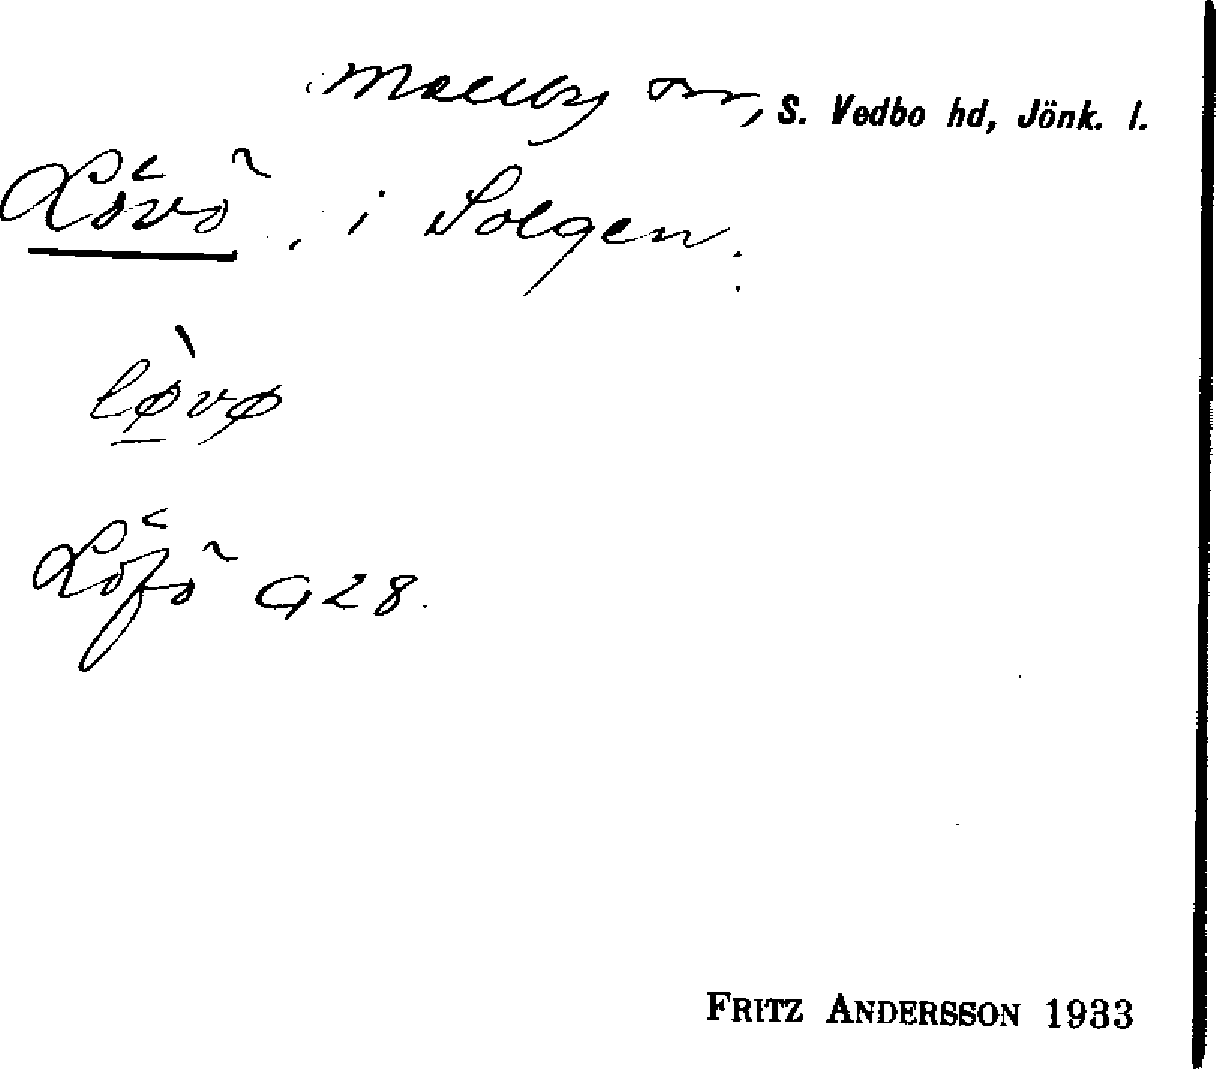 Mallby sn, S. Vedbo hd, Jönk. l.
Lövö, i Solgen.
lø̀vø
Löfö G28.
FRITZ ANDERSSON 1933